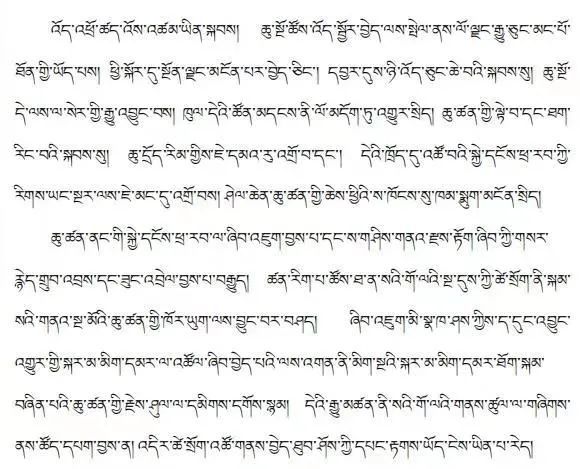 འོད་འཕྲོ་ཚད་འོས་འཚམ་ཡིན་སྐབས། ཆུ་སྔོ་ཚོས་འོད་སྦྱོར་བྱེད་ལས་སྤེལ་ནས་ལོ་ལྗང་རྒྱུ་ཅུང་མང་པོ་
ཐོན་གྱི་ཡོད་པས། ཕྱི་སྐོར་དུ་སྔོན་ལྗང་མངོན་པར་བྱེད་ཅིང་། དབྱར་དུས་ཉི་འོད་ཅུང་ཆེ་བའི་སྐབས་སུ། ཆུ་སྔོ་
དེ་ལས་ལ་སེར་གྱི་རྒྱུ་འབྱུང་བས། ཁུལ་དེའི་ཚོན་མདངས་ནི་ལོ་མདོག་ཏུ་འགྱུར་སྲིད། ཆུ་ཚན་གྱི་ལྟེ་བ་དང་ཐག་
རིང་བའི་སྐབས་སུ། ཆུ་དྲོད་རིམ་གྱིས་ཇེ་དམའ་རུ་འགྲོ་བ་དང་། དེའི་ཁྲོད་དུ་འཚོ་བའི་སྐྱེ་དངོས་ཕྲ་རབ་ཀྱི་
རིགས་ཡང་སྔར་ལས་ཇེ་མང་དུ་འགྲོ་བས། ཤེལ་ཆེན་ཆུ་ཚན་གྱི་ཆེས་ཕྱིའི་ས་ཁོངས་སུ་ཁམ་སྨུག་མངོན་སྲིད།
ཆུ་ཚན་ནང་གི་སྐྱེ་དངོས་ཕྲ་རབ་ལ་ཞིབ་འཇུག་བྱས་པ་དང་ས་གཤིས་གནའ་རྫས་རྟོག་ཞིབ་ཀྱི་གསར་
རྙེད་གྲུབ་འབྲས་དང་ཟུང་འབྲེལ་བྱས་པ་བརྒྱུད། ཚན་རིག་པ་ཚོས་ཐ་ན་སའི་གོ་ལའི་སྔ་དུས་ཀྱི་ཚེ་སྲོག་ནི་སྐམ་
སའི་གནའ་སྔ་མོའི་ཆུ་ཚན་གྱི་ཁོར་ཡུག་ལས་བྱུང་བར་བཤད། ཞིབ་འཇུག་མི་སྣ་ཁ་ཤས་ཀྱིས་ད་དུང་འབྱུང་
འགྱུར་གྱི་སྐར་མ་མིག་དམར་ལ་འཚོལ་ཞིབ་བྱེད་པའི་ལས་འགན་ནི་མིག་སྔའི་སྐར་མ་མིག་དམར་ཐོག་སྐམ་
བཞིན་པའི་ཆུ་ཚན་གྱི་རྗེས་ཤུལ་ལ་དམིགས་དགོས་སྙམ། དེའི་རྒྱུ་མཚན་ནི་སའི་གོ་ལའི་གནས་ཚུལ་ལ་གཞིགས་
ནས་ཚོད་དཔག་བྱས་ན། འདིར་ཚེ་སྲོག་འཚོ་གནས་བྱེད་ཐུབ་ཤོས་ཀྱི་དཔང་རྟགས་ཡོད་ངེས་ཡིན་པ་རེད།